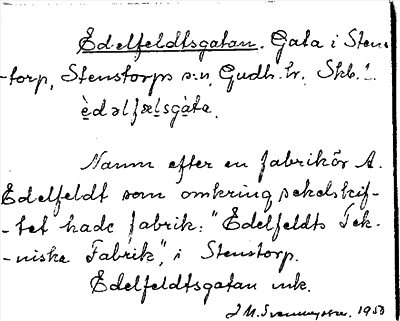 Edelfeldtsgatan. Gata i Stens-
-torp, Stenstorps s:n, Gudh. hr. Skb. l.
èdəlfælsgàta.
Namn efter en fabrikör A.
Edelfeldt som omkring sekelskif-
-tet hade fabrik: "Edelfeldts Tek-
-niska Fabrik", i Stenstorp.
Edelfeldtsgatan
1950